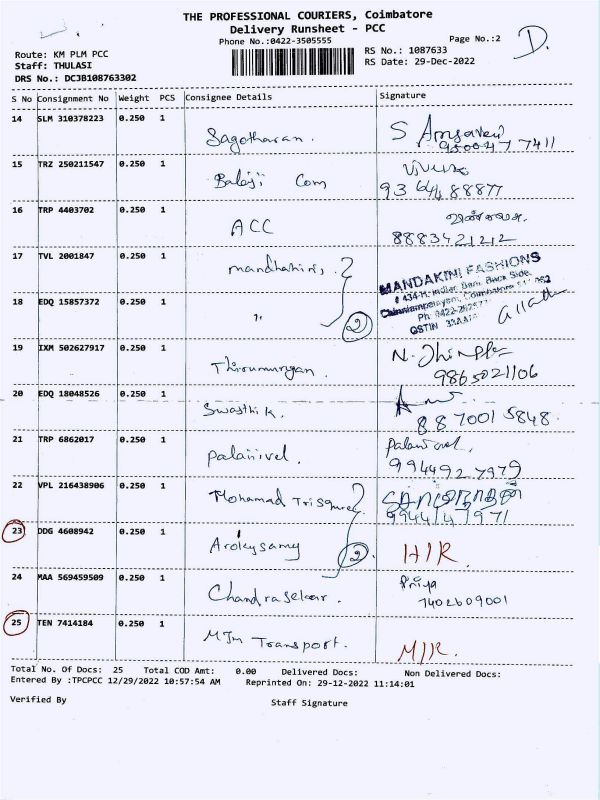 THE PROFESSIONAL COURIERS, Coimbatore
Delivery Runsheet - PCC
Phone No.:0422-3505555
Page No.:2
D.
Route: KM PLM PCC
Staff: THULASI
DRS No.: DCJB108763302
RS No.: 1087633
RS Date: 29-Dec-2022
S No Consignment No Weight PCS Consignee Details Signature
14 SLM 310378223 0.250 1
Sagotharan. S
95004 7 7411
15 TRZ 250211547 0.250 1
Balaji Com
93 64488877
16 TRP 4403702 0.250 1
ACC
8883421212
17 TVL 2001847 0.250 1
MANDAKINI FASHIONS
18 EDQ 15857372 0.250 1
2
19 IXM 502627917 0.250 1
Thirumurgan. N.
9865021106
20 EDQ 18048526 0.250 1
Swasthik.
8870015848
21 TRP 6862017 0.250 1
palanivel.
9944927979
22 VPL 216438906 0.250 1
Mohamad
9944147971
23 DDG 4608942 0.250 1
Arokysamy 2
24 MAA 569459509 0.250 1
Chandrasekar. Priya
7402609001
25 TEN 7414184 0.250 1
MJM Transport.
Total No. Of Docs: 25 Total COD Amt: 0.00 Delivered Docs: Non Delivered Docs:
Entered By :TPCPCC 12/29/2022 10:57:54 AM Reprinted On: 29-12-2022 11:14:01
Verified By Staff Signature